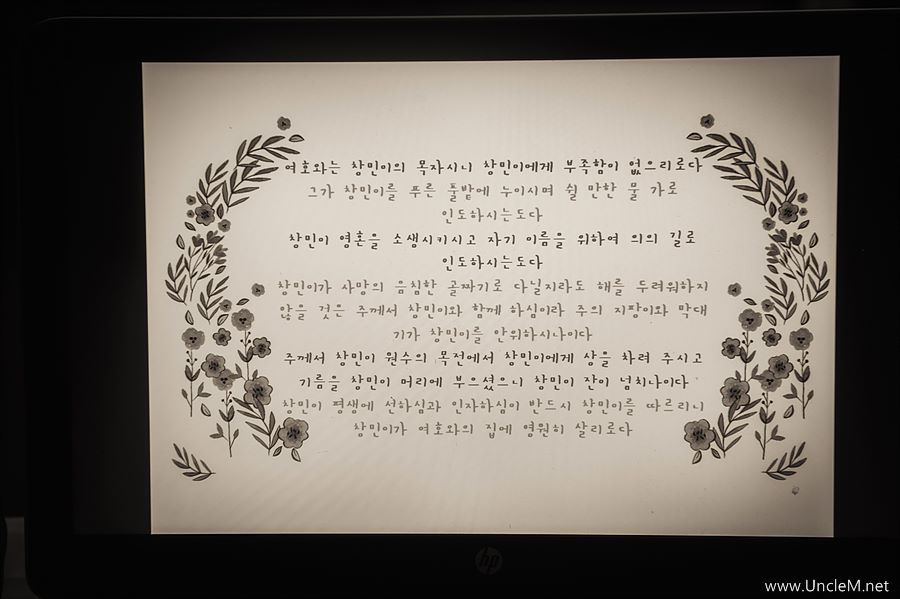 여호와는 창민이의 목자시니 창민이에게 부족함이 없으리로다
그가 창민이를 푸른 풀밭에 누이시며 쉴 만한 물 가로
인도하시는도다
창민이 영혼을 소생시키시고 자기 이름을 위하여 의의 길로
인도하시는도다
창민이가 사망의 음침한 골짜기로 다닐지라도 해를 두려워하지
않을 것은 주께서 창민이와 함께 하심이라 주의 지팡이와 막대
기가 창민이를 안위하시나이다
주께서 창민이 원수의 목전에서 창민이에게 상을 차려 주시고
기름을 창민이 머리에 부으셨으니 창민이 잔이 넘치나이다
창민이 평생에 선하심과 인자하심이 반드시 창민이를 따르리니
창민이가 여호와의 집에 영원히 살리로다
hp
www.UncleM.net